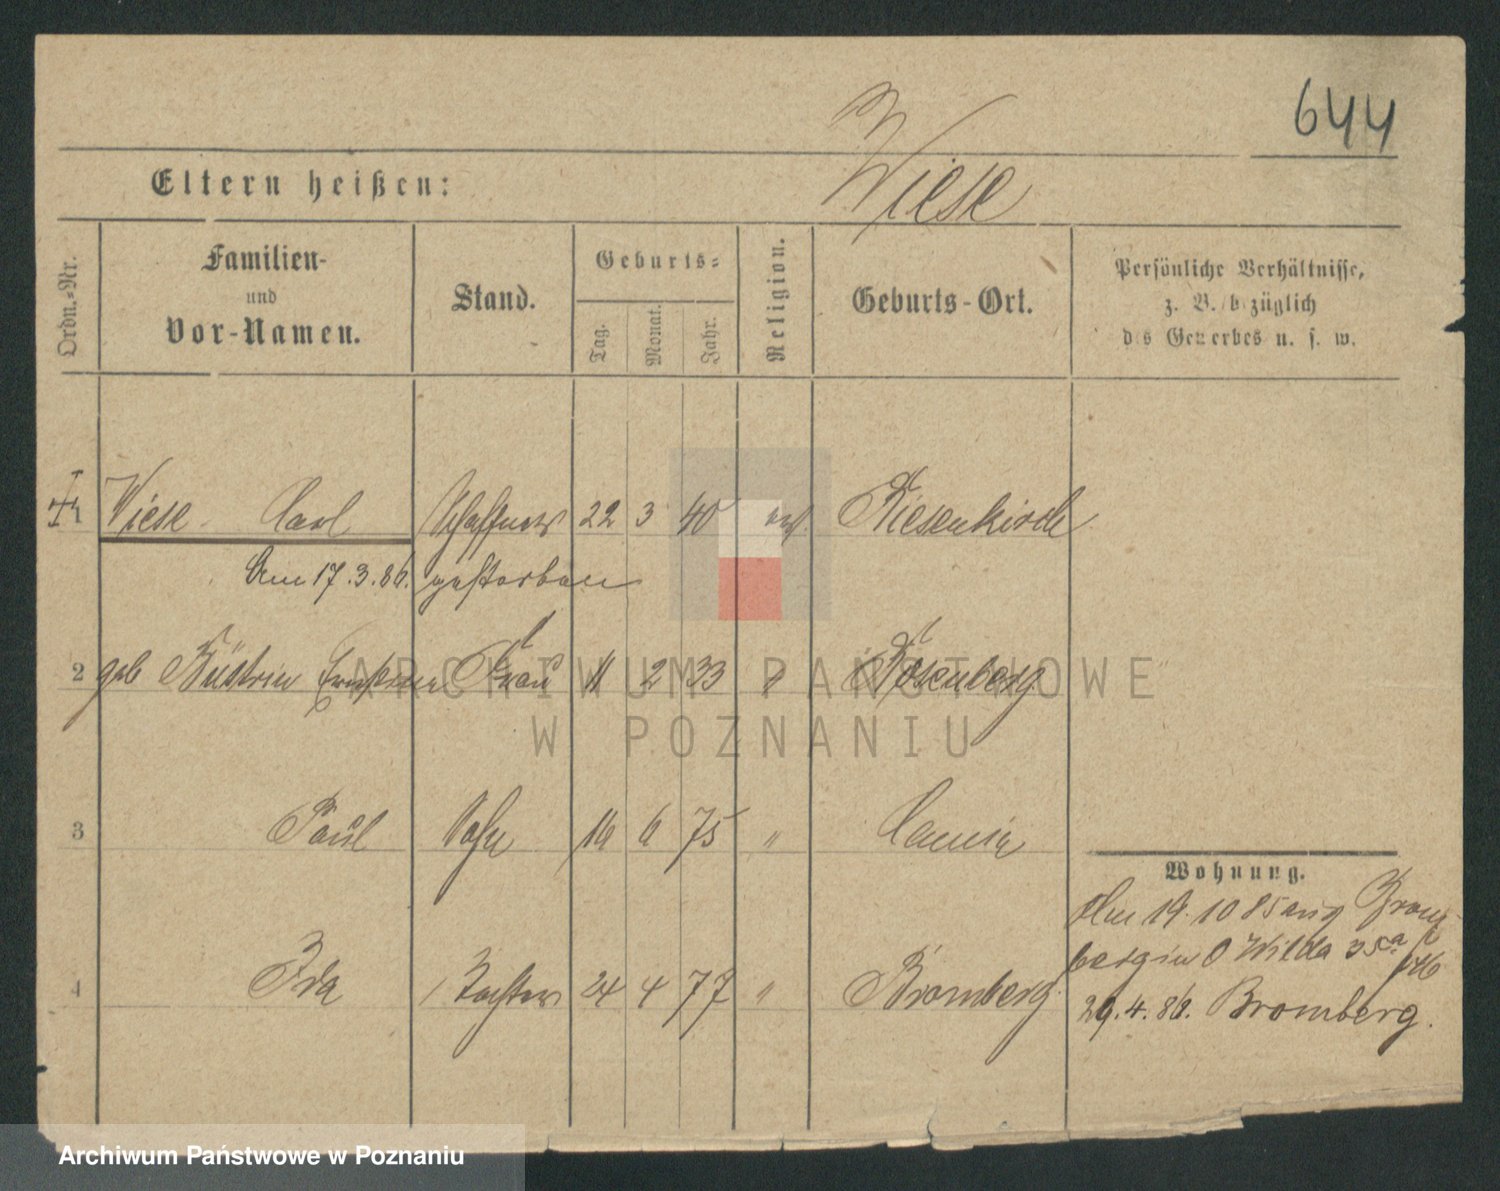 644
Wiese
Eltern heißen:
Ordn.-Nr.
Familien-
und
Vor-Namen.
Stand.
Geburts-
Tag.
Monat.
Jahr.
Religion.
Geburts-Ort.
Persönliche Verhältnisse,
z. B. bezüglich
des Gewerbes u. s. w.
1 Wiese Carl Schaffner 22 3 40 ev. Riesenkirch
Am 17.3.86. gestorben
2 geb Büstrin Ernstine Frau 11 2 33 " Rosenberg
3 Paul Sohn 16 6 75 "
4 Ida Tochter 24 4 77 " Bromberg
Wohnung.
Am 19.10 85 aus Brom-
berg in O Wilda 35a
29.4.86. Bromberg.
ARCHIWUM PAŃSTWOWE
W POZNANIU
Archiwum Państwowe w Poznaniu